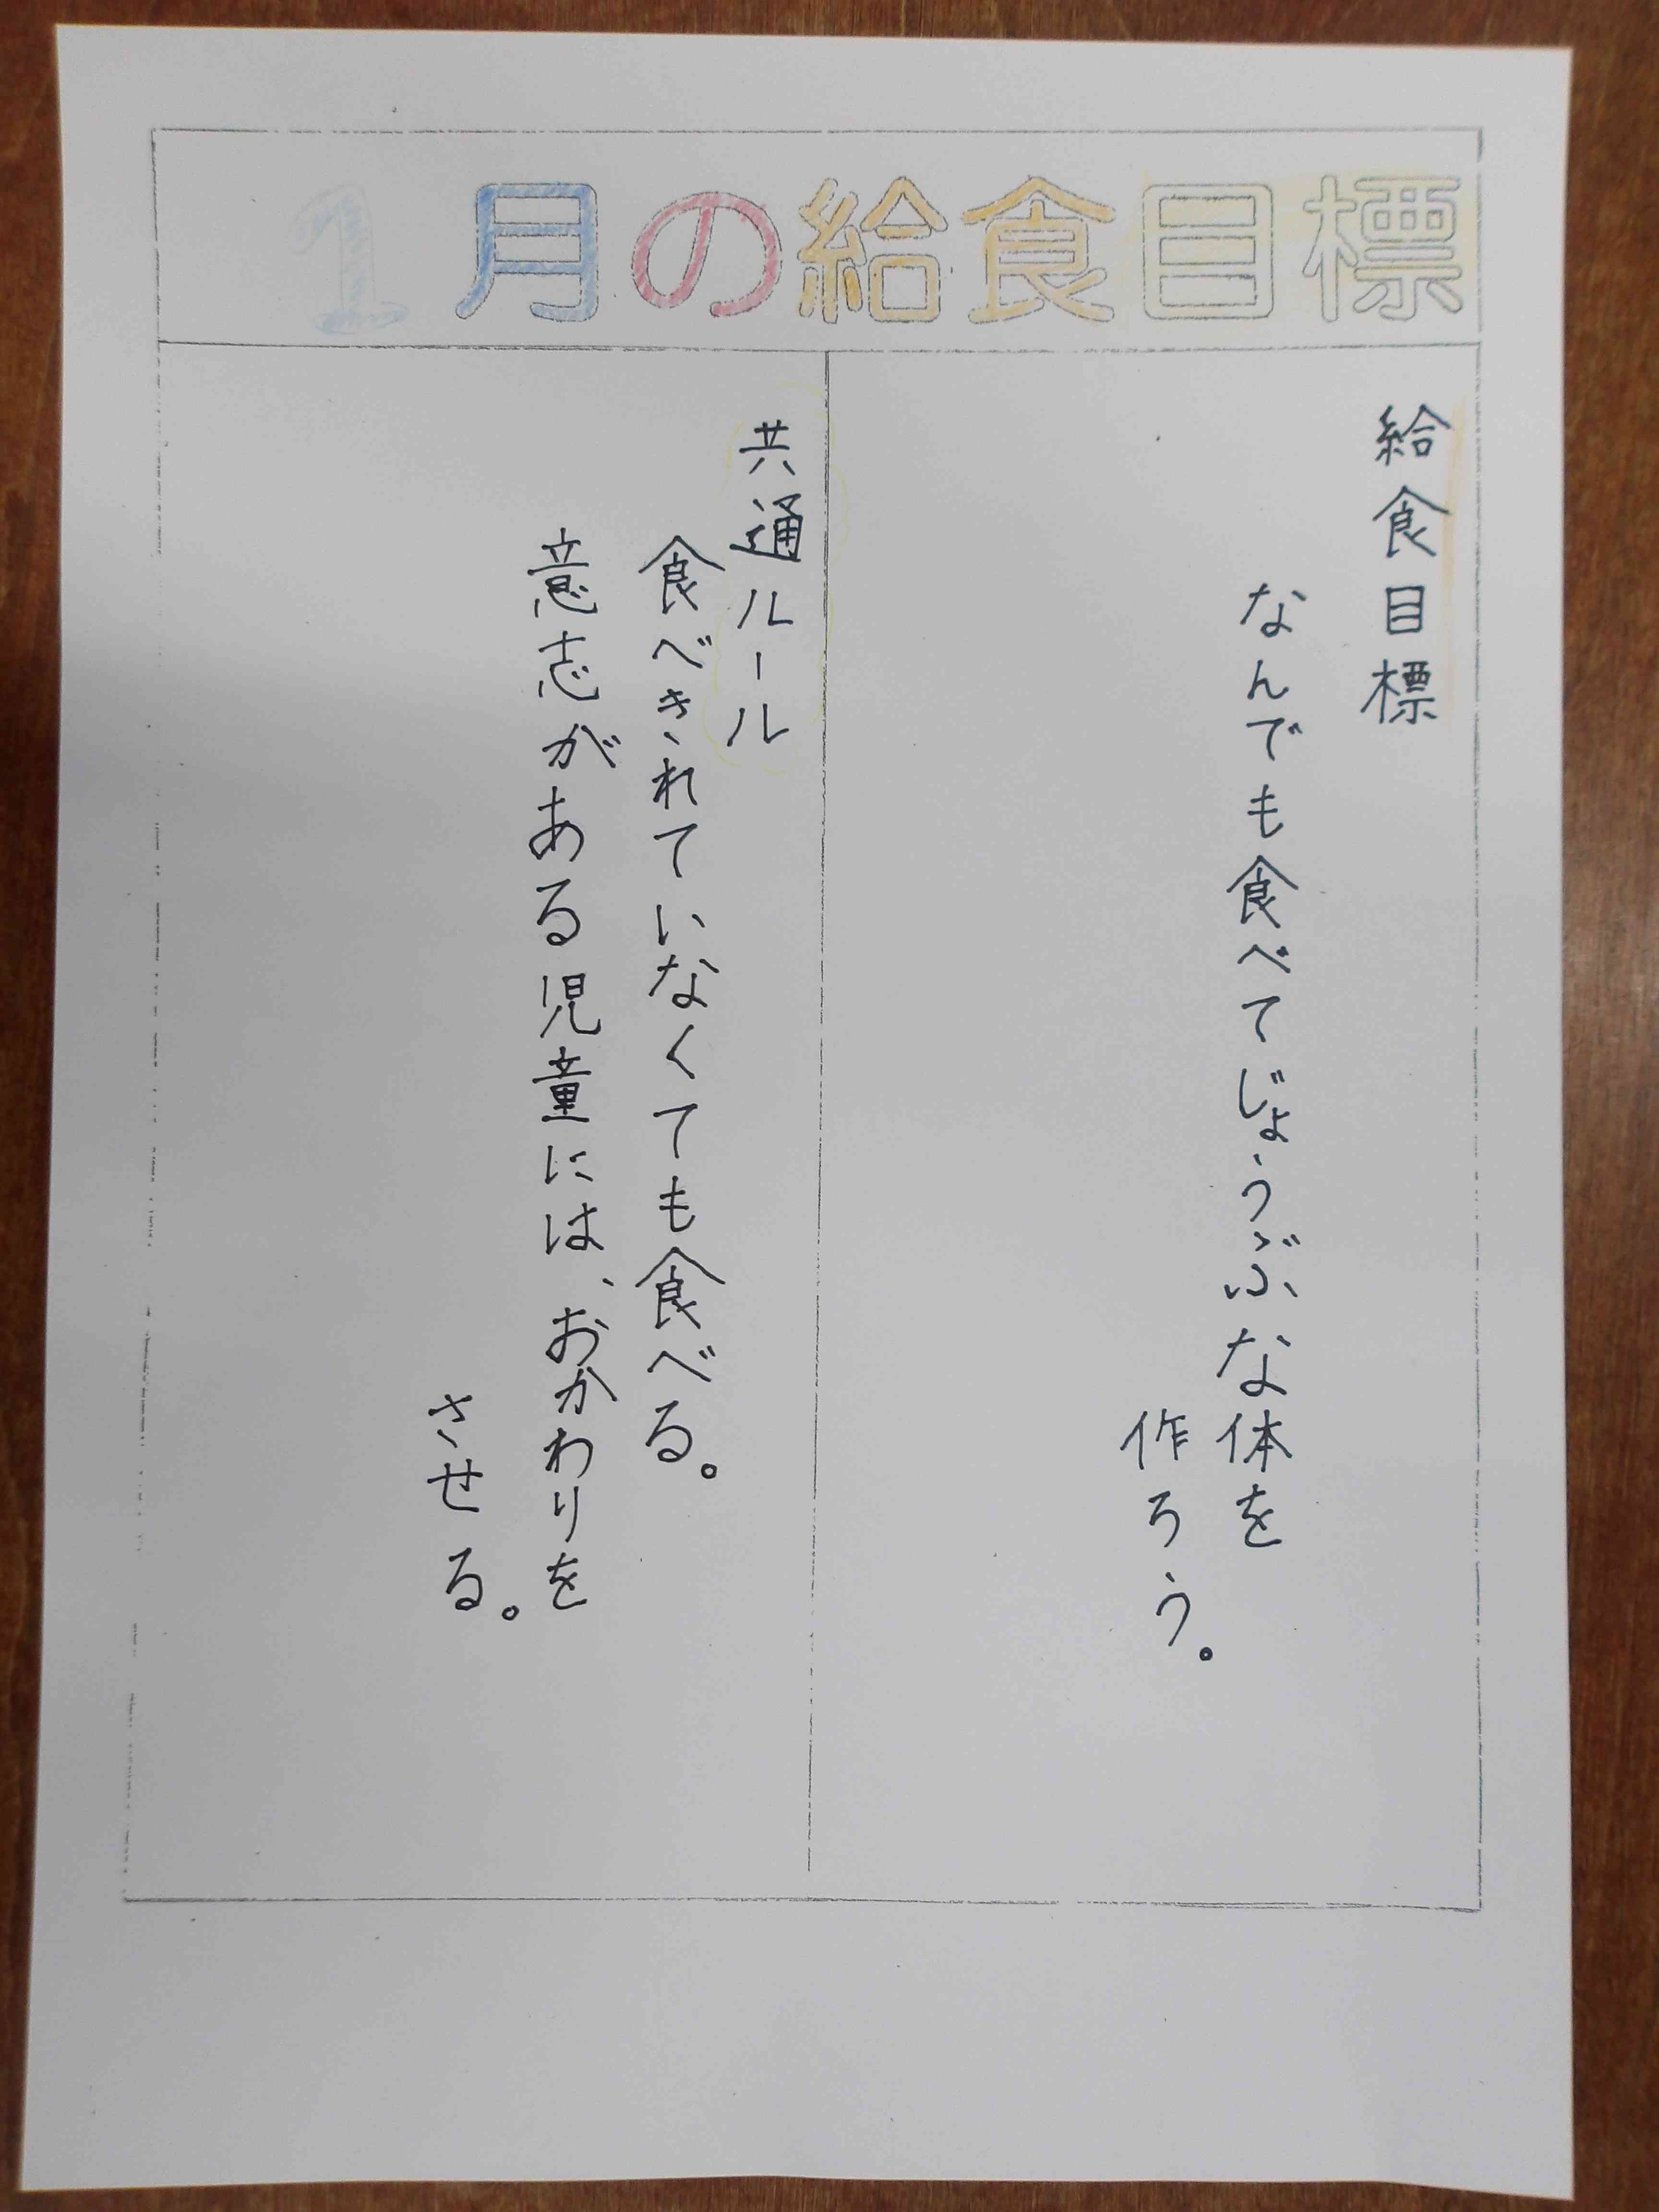 1月の給食目標
給食目標
なんでも食べてじょうぶな体を
作ろう。
共通ルール
食べきれていなくても食べる。
意志がある児童には、おかわりを
させる。